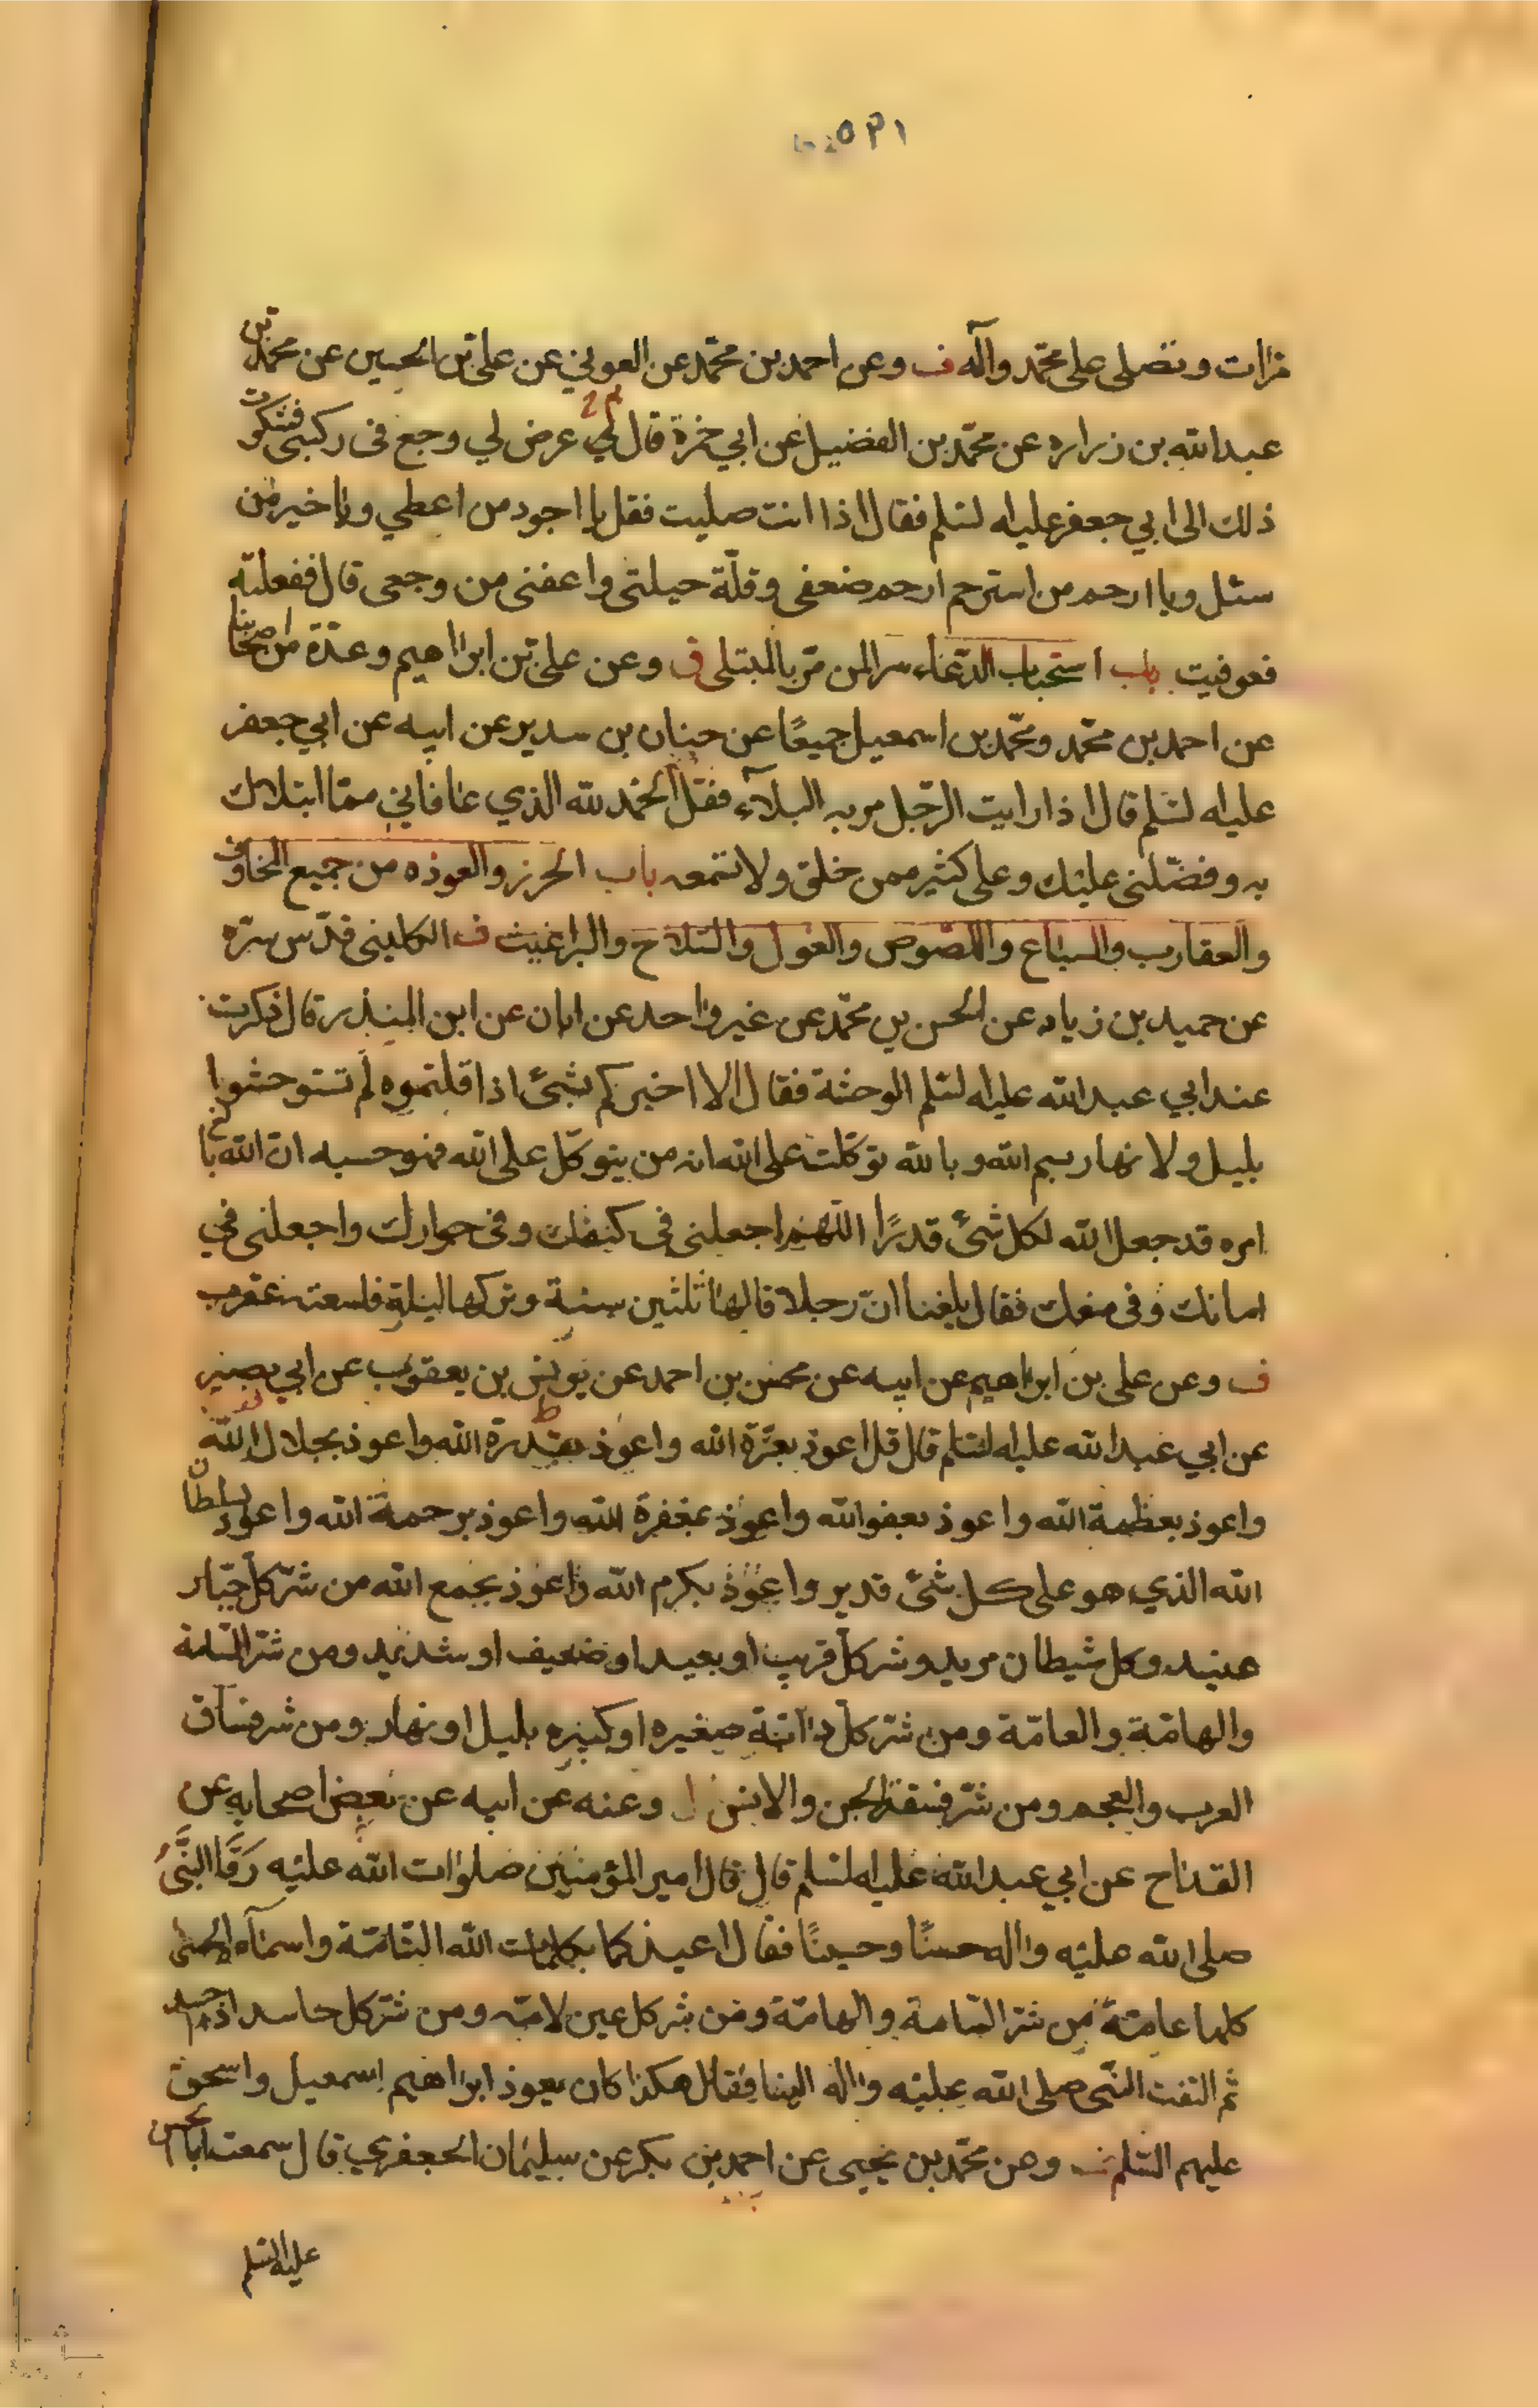 مرات وتصلى على محمّد وآله ف وعن احمد بن محمّد عن العوفي عن على بن الحسين عن محمد بن
عبدالله بن زراره عن محمّد بن الفضيل عن ابي حمزة قال عرض لي وجع فى ركبتى فشكوت
ذلك الى ابي جعفر عليه السلم فقال اذا انت صليت فقل يا اجود من اعطي ويا خير من
سئل ويا ارحم من استرحم ارحم ضعفى وقلّة حيلتى واعفنى من وجعى قال ففعلته
فعوفيت باب استحباب الدّعاء سرا لمن مرّ بالمبتلى ف وعن على بن ابراهيم وعدّة من اصحابنا
عن احمد بن محمّد ومحمّد بن اسمعيل جميعًا عن حنان بن سدير عن ابيه عن ابي جعفر
عليه السلم قال اذا رايت الرّجل مر به البلآء فقل الحمد لله الذي عافاني ممّا ابتلاك
به وفضّلنى عليك وعلى كثير ممن خلق ولا تسمعه باب الحرز والعوذه من جميع المخاوف
والعقارب والسباع واللصوص والغول والسلاح والبراغيث ف الكلينى قدّس سرّه
عن حميد بن زياد عن الحسن بن محمّد عن غير واحد عن ابان عن ابن المنذر قال ذكرت
عند ابي عبدالله عليه السلم الوحشة فقال الا اخبركم بشئ اذا قلتموه لم تستوحشوا
بليل ولا نهار بسم الله وبالله توكّلت على الله انه من يتوكّل على الله فهو حسبه انّ الله بالغ
امره قد جعل الله لكل شئ قدرًا اللهم اجعلنى فى كنفك وفى جوارك واجعلنى في
امانك وفى منعك فقال بلغنا انّ رجلا قالها ثلثين سنة وتركها ليلة فلسعته عقرب
ف وعن على بن ابراهيم عن ابيه عن محسن بن احمد عن يونس بن يعقوب عن ابي بصير
عن ابي عبدالله عليه السلم قال قل اعوذ بعزّة الله واعوذ بقدرة الله واعوذ بجلال الله
واعوذ بعظمة الله واعوذ بعفو الله واعوذ بمغفرة الله واعوذ برحمة الله واعوذ بسلطان
الله الذي هو على كل شئ قدير واعوذ بكرم الله واعوذ بجمع الله من شرّ كلّ جبّار
عنيد وكل شيطان مريد وشر كلّ قريب او بعيد او ضعيف او شديد ومن شرّ السّامة
والهامّة والعامّة ومن شرّ كلّ دابّة صغيره او كبيره بليل او نهار ومن شر فساق
العرب والعجم ومن شرّ فسقة الجن والانس وعنه عن ابيه عن بعض اصحابه عن
القداح عن ابي عبدالله عليه السلم قال قال امير المؤمنين صلوات الله عليه رَقَا النَّبيُّ
صلى الله عليه واله حسنًا وحسينًا فقال اعيذكما بكلمات الله التّامّة واسمآءه الحسنى
كلها عامّة من شرّ السّامة والهامّة ومن شر كل عين لامّه ومن شرّ كل حاسد اذا حسد
ثم التفت النّبى صلى الله عليه واله الينا فقال هكذا كان يعوذ ابراهيم اسمعيل واسحق
عليهم السّلم ف وعن محمّد بن يحيى عن احمد بن بكر عن سليمان الجعفري قال سمعت ابا الحسن
عليه السلم